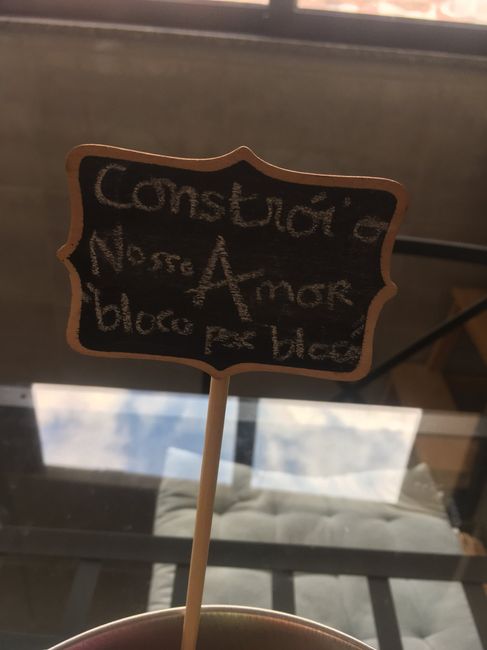 Constrói o
Nosso Amor
bloco por bloco